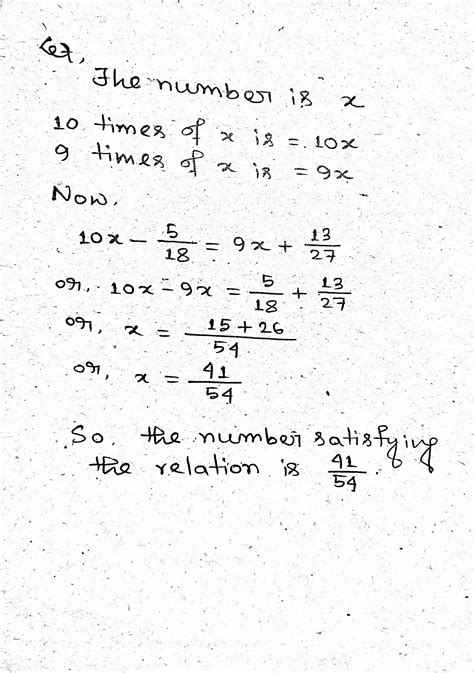 Let,
The number is x
10 times of x is = 10x
9 times of x is = 9x
Now,
10x - 5/18 = 9x + 13/27
or, 10x - 9x = 5/18 + 13/27
or, x = 15 + 26/54
or, x = 41/54
So, the number satisfying
the relation is 41/54.